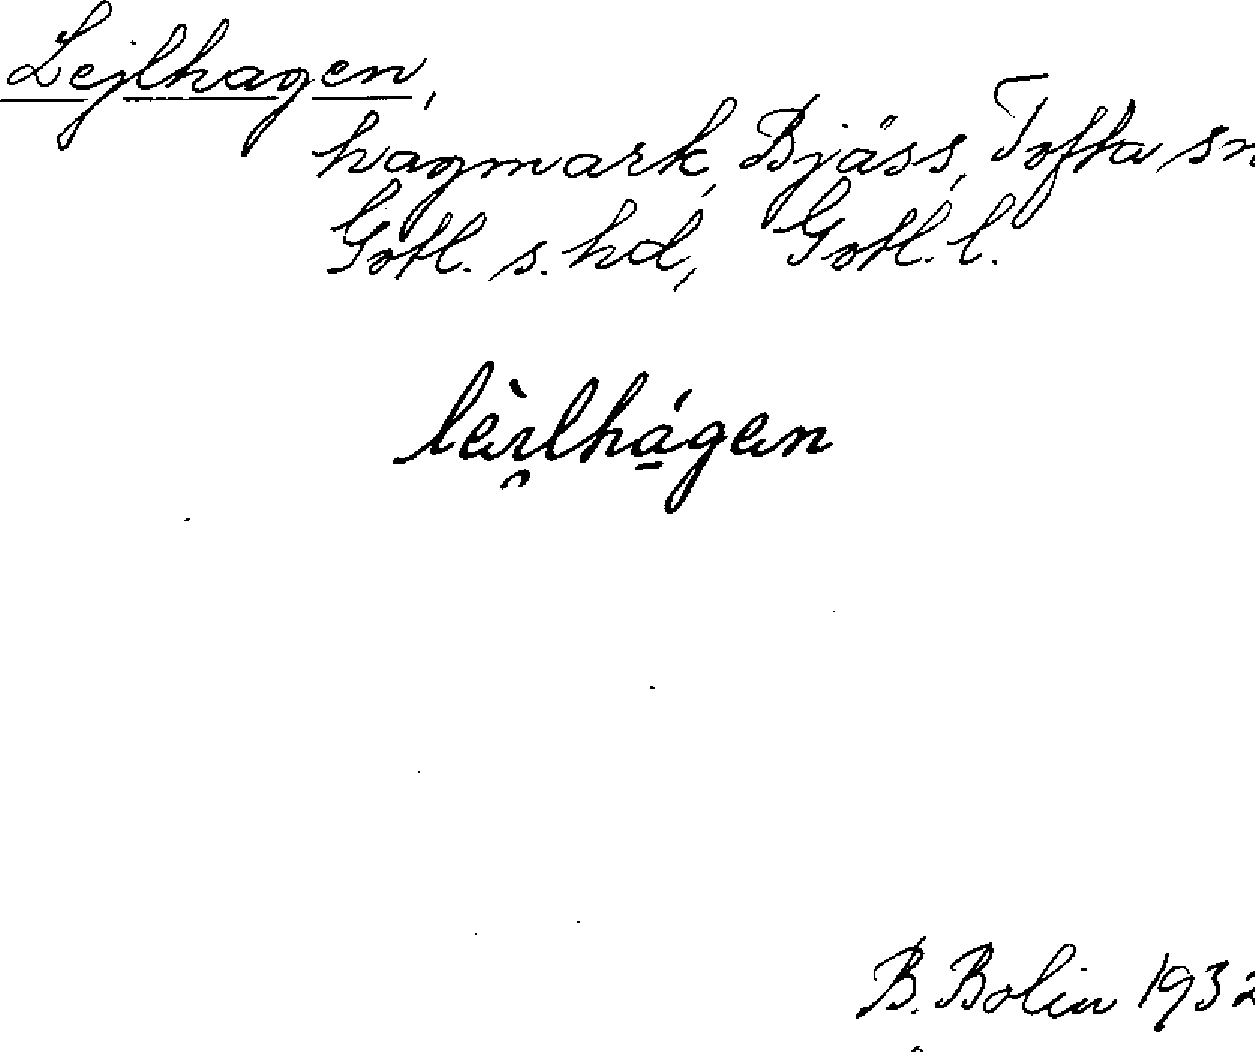 Lejlhagen,
hagmark, Bjäss, Tofta sn
Gotl. s. hd, Gotl. l.
B. Bolin 1932